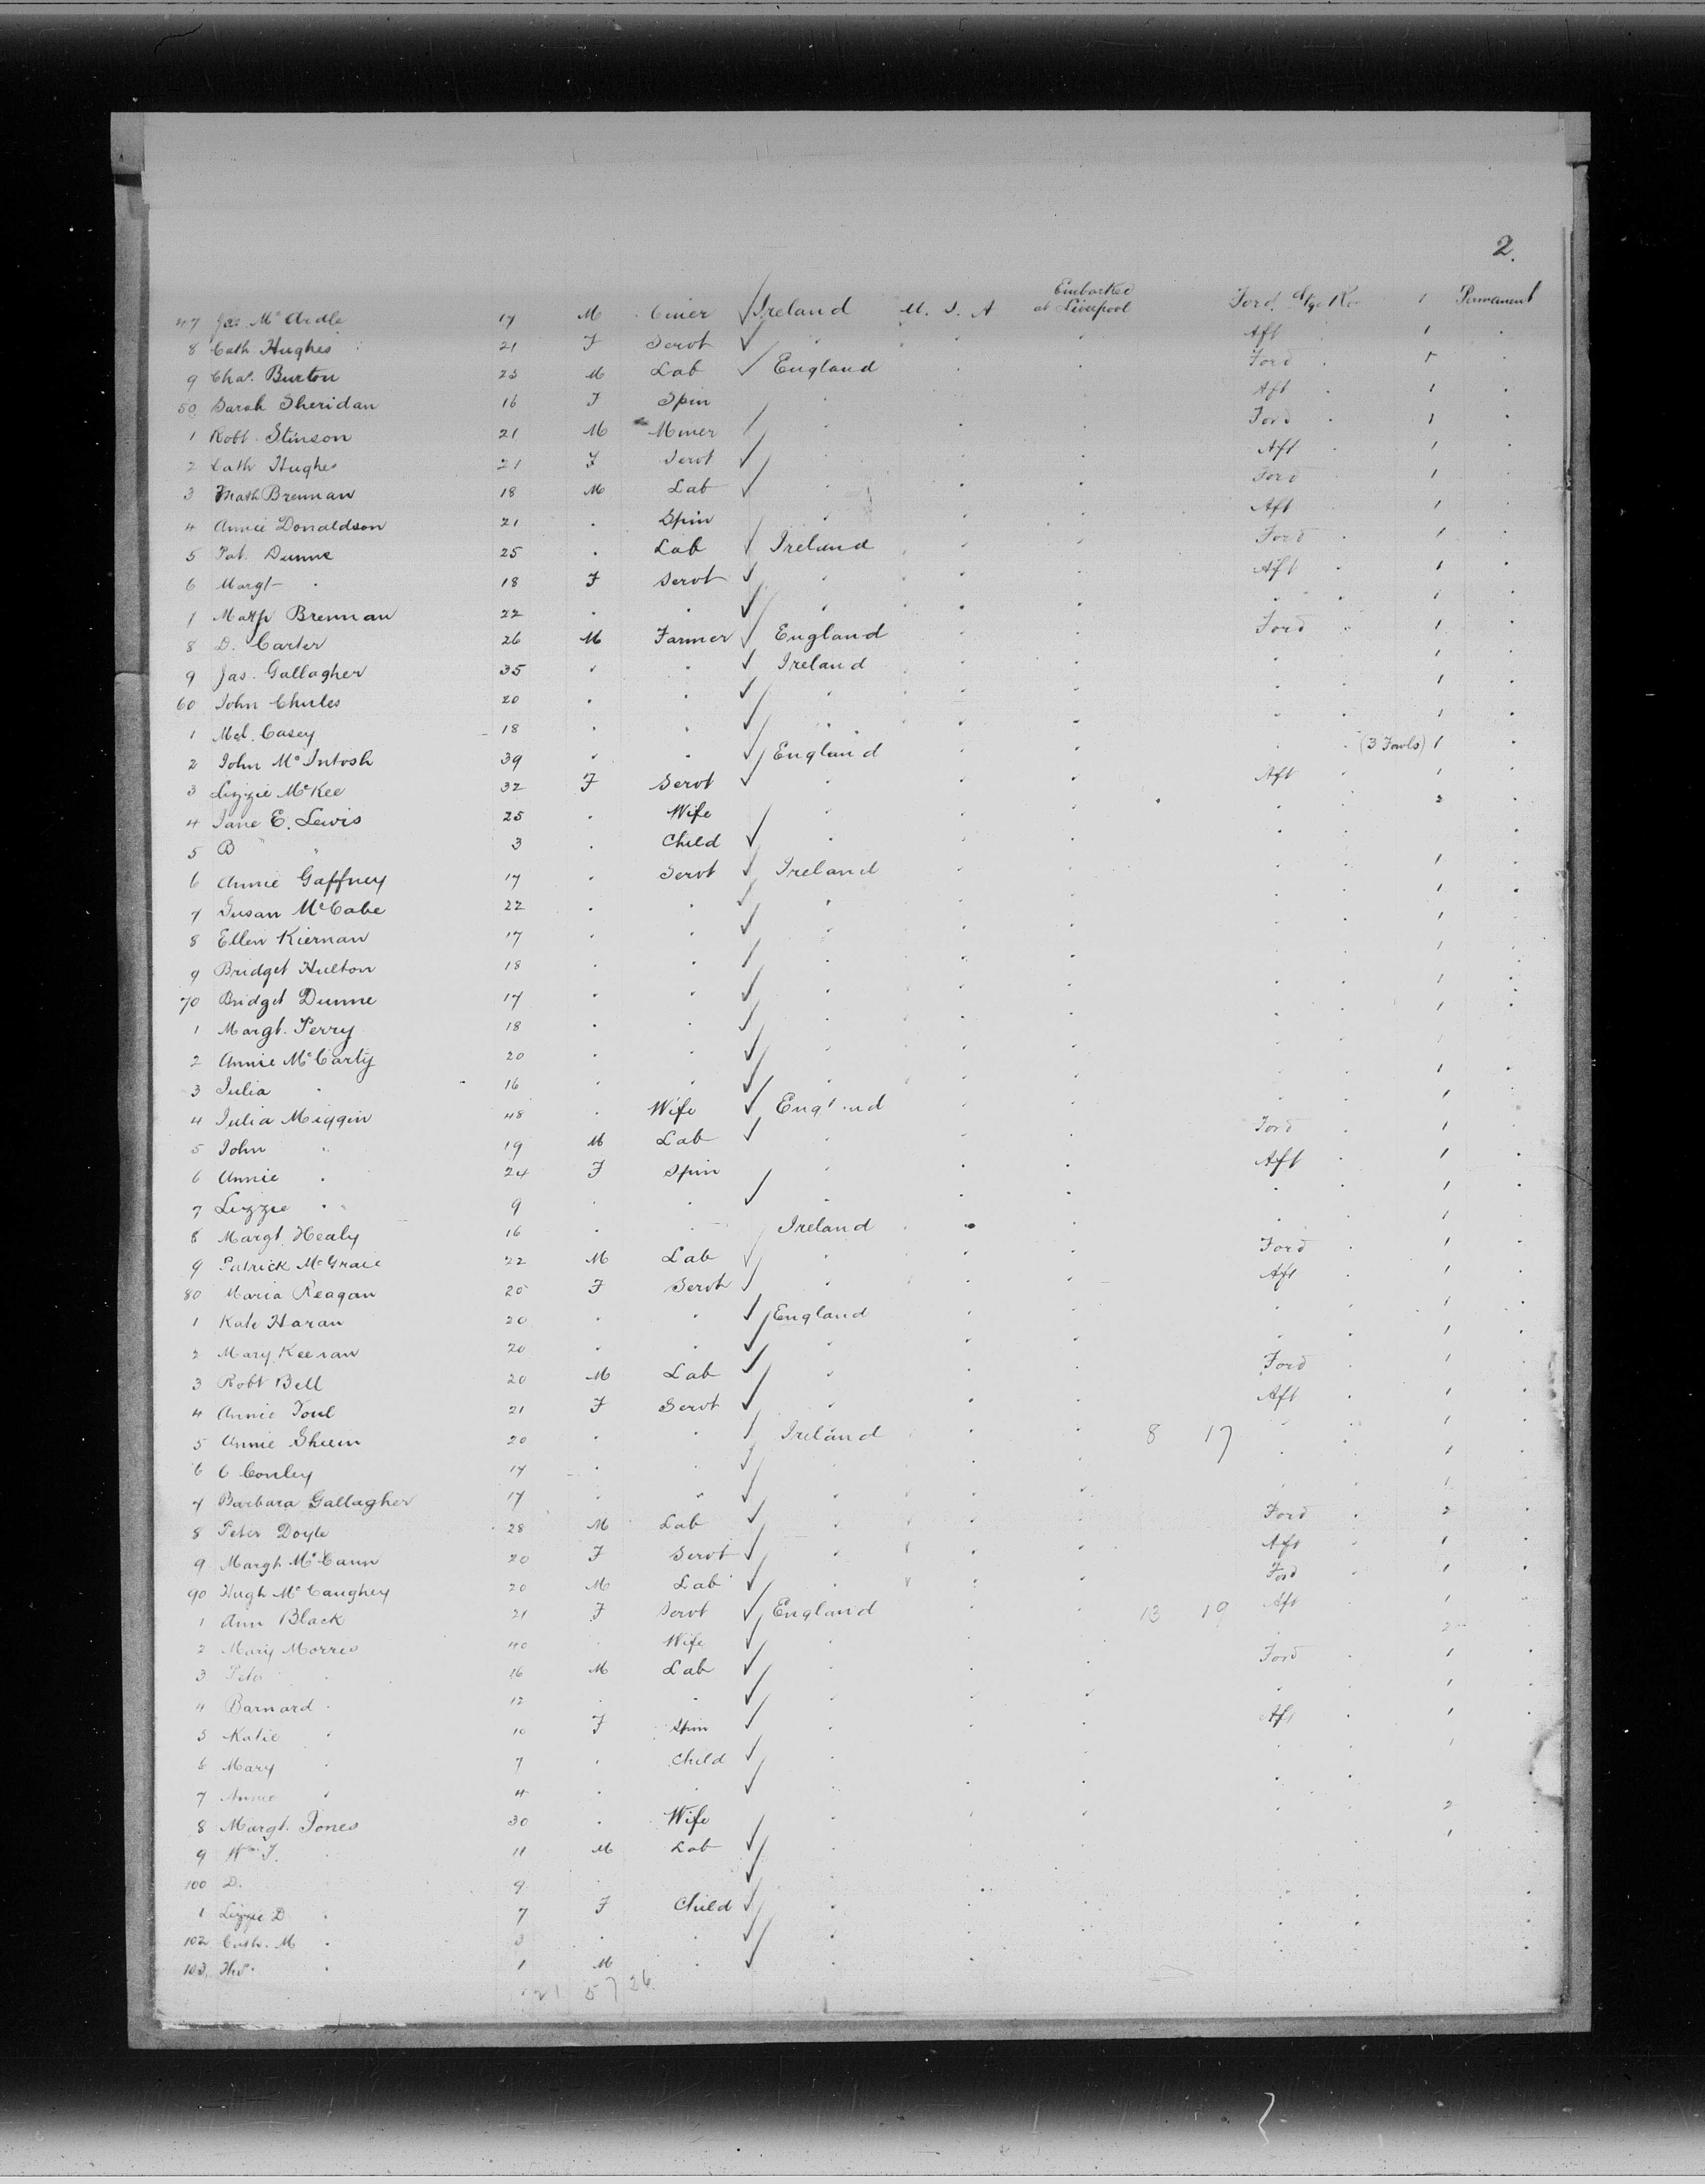 2.
47 Jas. McArdle 17 M Ireland U. S. A Embarked at Liverpool Ford. 1 Permanent
8 Cath Hughes 21 F Servt Aft 1
9 Chas. Burton 23 M Lab England Ford 1
50 Sarah Sheridan 16 F Spin Aft 1
1 Robt. Stinson 21 M Miner Ford 1
2 Cath Hughes 21 F Servt Aft 1
3 Brennan 18 M Lab Ford 1
4 Annie Donaldson 21 Spin Aft 1
5 Pat. Dunne 25 Lab Ireland Ford 1
6 Margt " 18 F Servt Aft 1
7 Brennan 22 " " 1
8 D. Carter 26 M Farmer England Ford 1
9 Jas. Gallagher 35 " " Ireland 1
60 John Chules 20 " " 1
1 Casey 18 " " 1
2 John McIntosh 39 " " England (3 Fowls) 1
3 Lizzie McKee 32 F Servt Aft 1
4 Jane E. Lewis 25 " Wife 2
5 B " 3 " Child
6 Annie Gaffney 17 " Servt Ireland 1
7 Susan McCabe 22 " " 1
8 Ellen Kiernan 17 " " 1
9 Bridget Hulton 18 " " 1
70 Bridget Dunne 17 " " 1
1 Margt. Perry 18 " " 1
2 Annie McCarty 20 " "
3 Julia " 16 " " 1
4 Julia Miggin 48 " Wife England 1
5 John " 19 M Lab Ford 1
6 Annie " 24 F Spin Aft 1
7 Lizzie " 9 " " 1
8 Margt. Healy 16 " Ireland 1
9 Patrick 22 M Lab Ford 1
80 Maria Reagan 20 F Servt Aft 1
1 Kate Haran 20 " " England 1
2 Mary Keenan 20 " " 1
3 Robt Bell 20 M Lab Ford 1
4 Annie Toul 21 F Servt Aft 1
5 Annie 20 " " Ireland 8 17 1
6 C Conley 17 " " 1
7 Barbara Gallagher 17 " " 1
8 Peter Doyle 28 M Lab Ford 2
9 Margt McCann 20 F Servt Aft 1
90 Hugh McCaughey 20 M Lab Ford 1
1 Ann Black 21 F Servt England 13 19 Aft 1
2 Mary Morris 40 " Wife 2
3 Peter " 16 M Lab Ford 1
4 Barnard " 12 " " 1
5 Katie " 10 F Spin Aft 1
6 Mary " 7 " Child 1
7 Annie " 4 " "
8 Margt. Jones 30 " Wife 2
9 Wm J. " 11 M Lab 1
100 D. " 9
1 Lizzie D " 7 F Child
102 Cath. M " 3 " "
103 Thos. " 1 M "
21 57 26